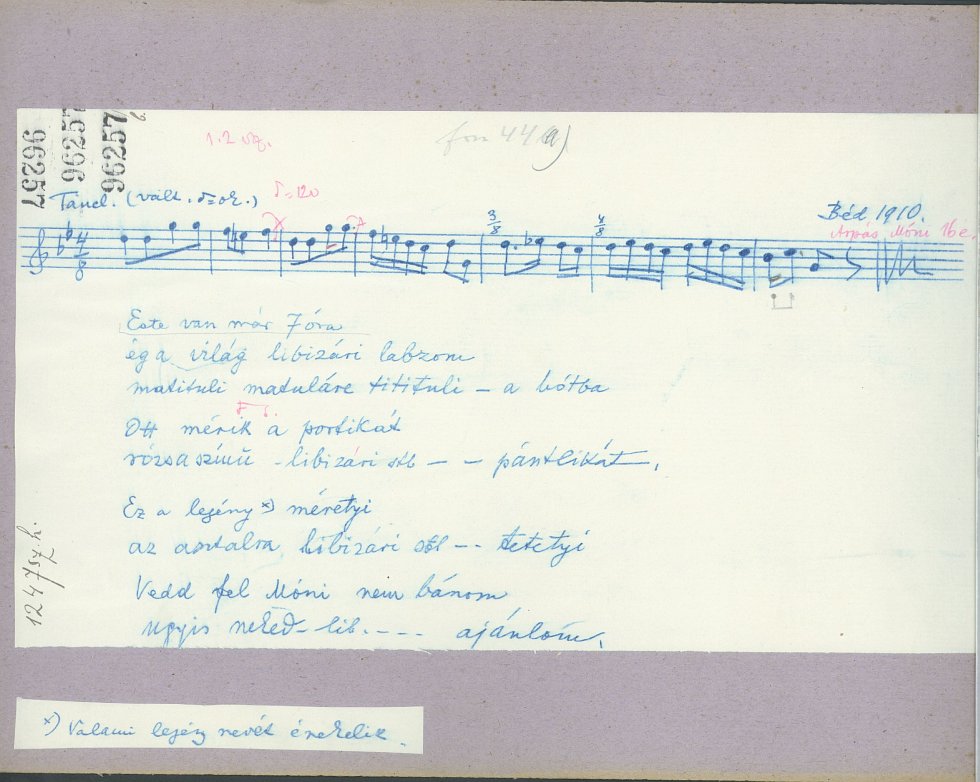 96257
96257
96257
1.2 sz.
fon 44 a)
Táncl. (vált.
=120
Béd 1910.
Árpás Móni 16 é.
4/8
3/8
4/8
Este van már 7 óra
ég a világ libizári labzom
matituli matuláre titituli – a bótba
Ott mérik a portikát
rózsaszinü – libizári stb – – pántlikát.
Ez a legény x) méretyi
az asztalra, libizári stb -- tetetyi
Vedd fel Móni nem bánom
ugyis neked – lib. - - - ajánlom.
124757 h.
x) Valami legény nevét éneklik.